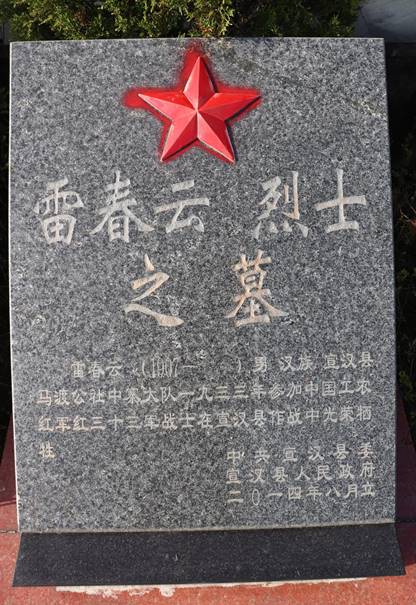 雷春云 烈士
之墓
雷春云 (1907— ) 男 汉族 宣汉县
马渡公社中寨大队一九三三年参加中国工农
红军红三十三军战士在宣汉县作战中光荣牺
牲
中共宣汉县委
宣汉县人民政府
二〇一四年八月立